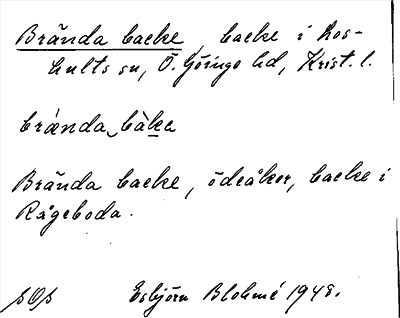 Brända backe, backe i Los-
hults sn, Ö. Göinge hd, Krist. l.
brǽnda bàkea
Brända backe, ödeåker, backe i
Rågeboda.
SOS Esbjörn Blohmé 1948.